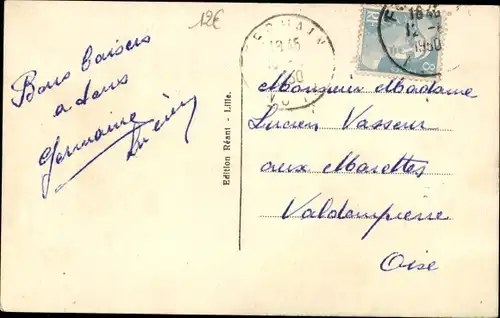 12€
Bons baisers
a dous
Germaine
Lucien
Edition Réant - Lille.
18 45
1950
18 45
12 -
1950
RF
8
Monsieur Madame
Lucien Vasseur
aux Marettes
Valdampierre
Oise